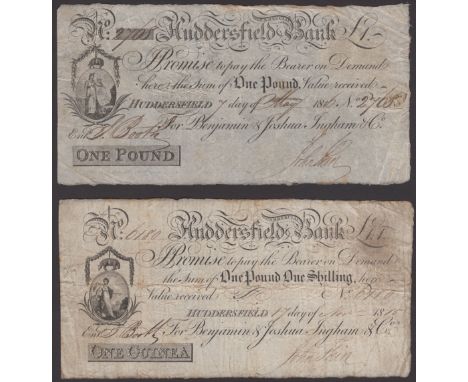 No. 27683 Huddersfield Bank £1.
I Promise to pay the Bearer on Demand
here the Sum of One Pound, Value received
HUDDERSFIELD 7 day of May 181 No. 27683
Entd. J. Booth For Benjamin & Joshua Ingham & Co.
ONE POUND
No. Huddersfield Bank £1.1
I Promise to pay the Bearer on Demand
the Sum of One Pound One Shilling, here
Value received No.
HUDDERSFIELD 17 day of 181
Entd. J. Booth For Benjamin & Joshua Ingham & Co.
ONE GUINEA